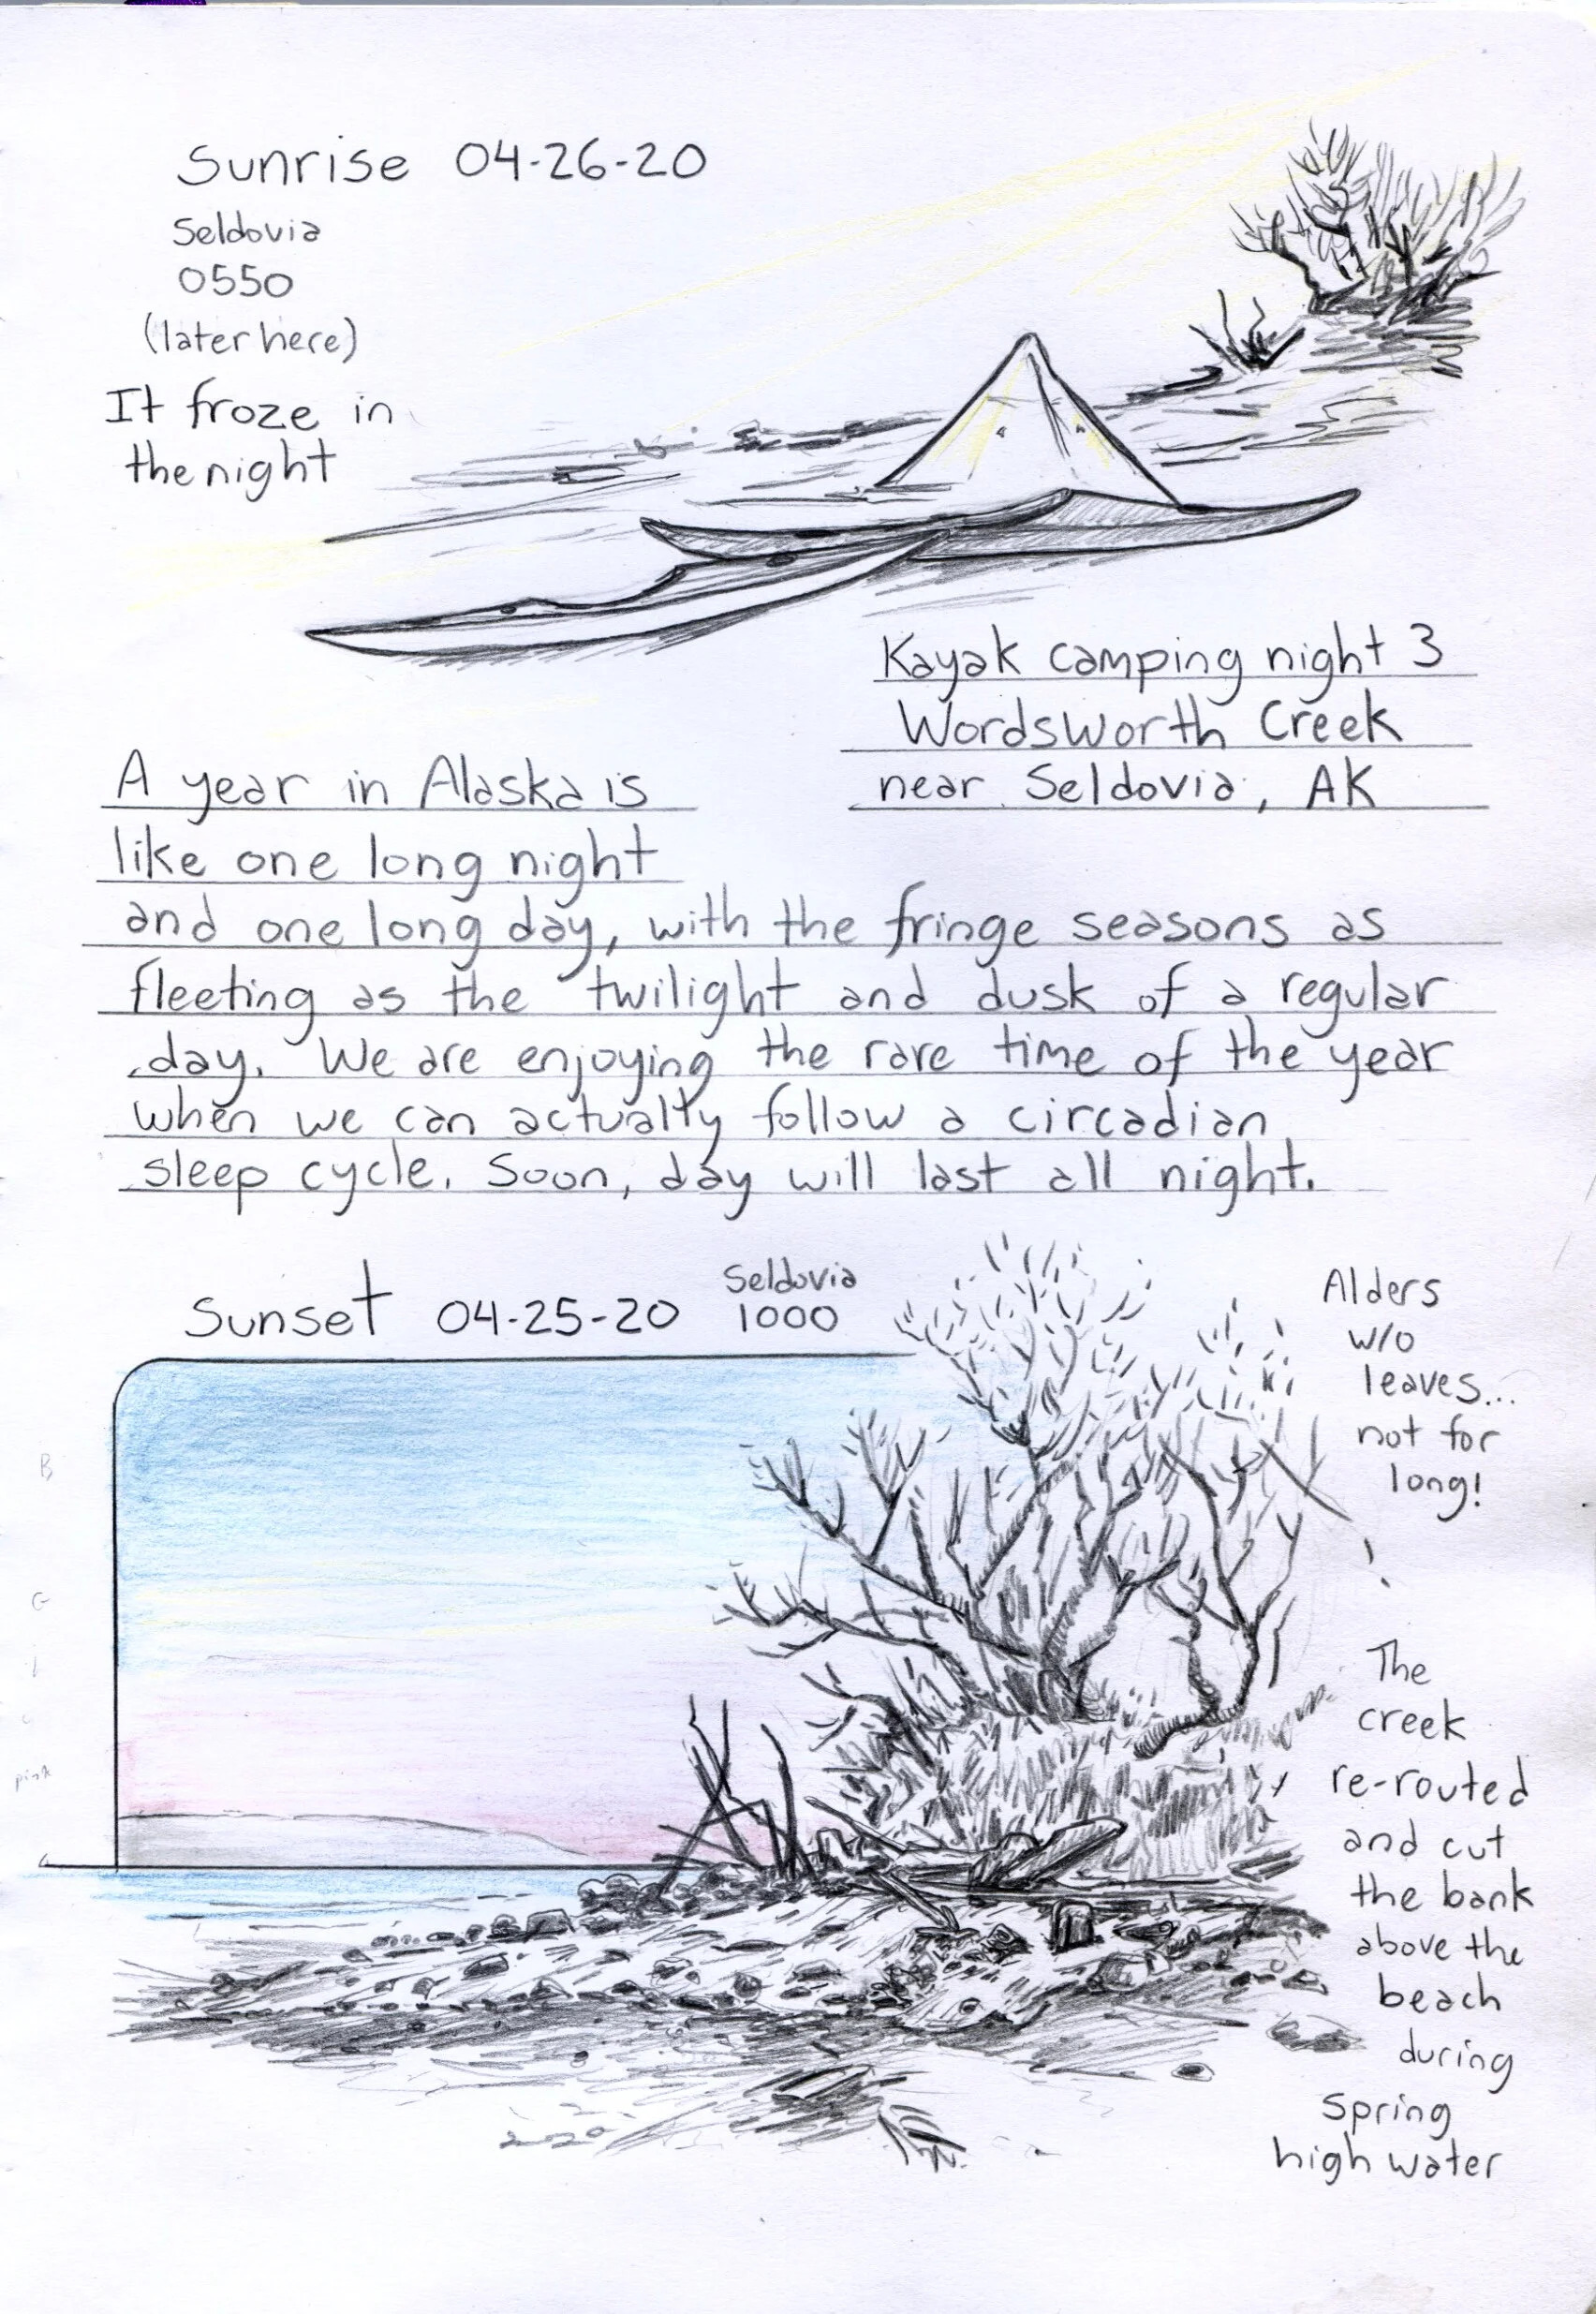 Sunrise 04-26-20
Seldovia
0550
(later here)
It froze in
the night
Kayak camping night 3
Wordsworth Creek
near Seldovia, AK
A year in Alaska is
like one long night
and one long day, with the fringe seasons as
fleeting as the twilight and dusk of a regular
day. We are enjoying the rare time of the year
when we can actually follow a circadian
sleep cycle. Soon, day will last all night.
Sunset 04-25-20
Seldovia
1000
Alders
w/o
leaves...
not for
long!
B
G
pink
The
creek
re-routed
and cut
the bank
above the
beach
during
spring
high water